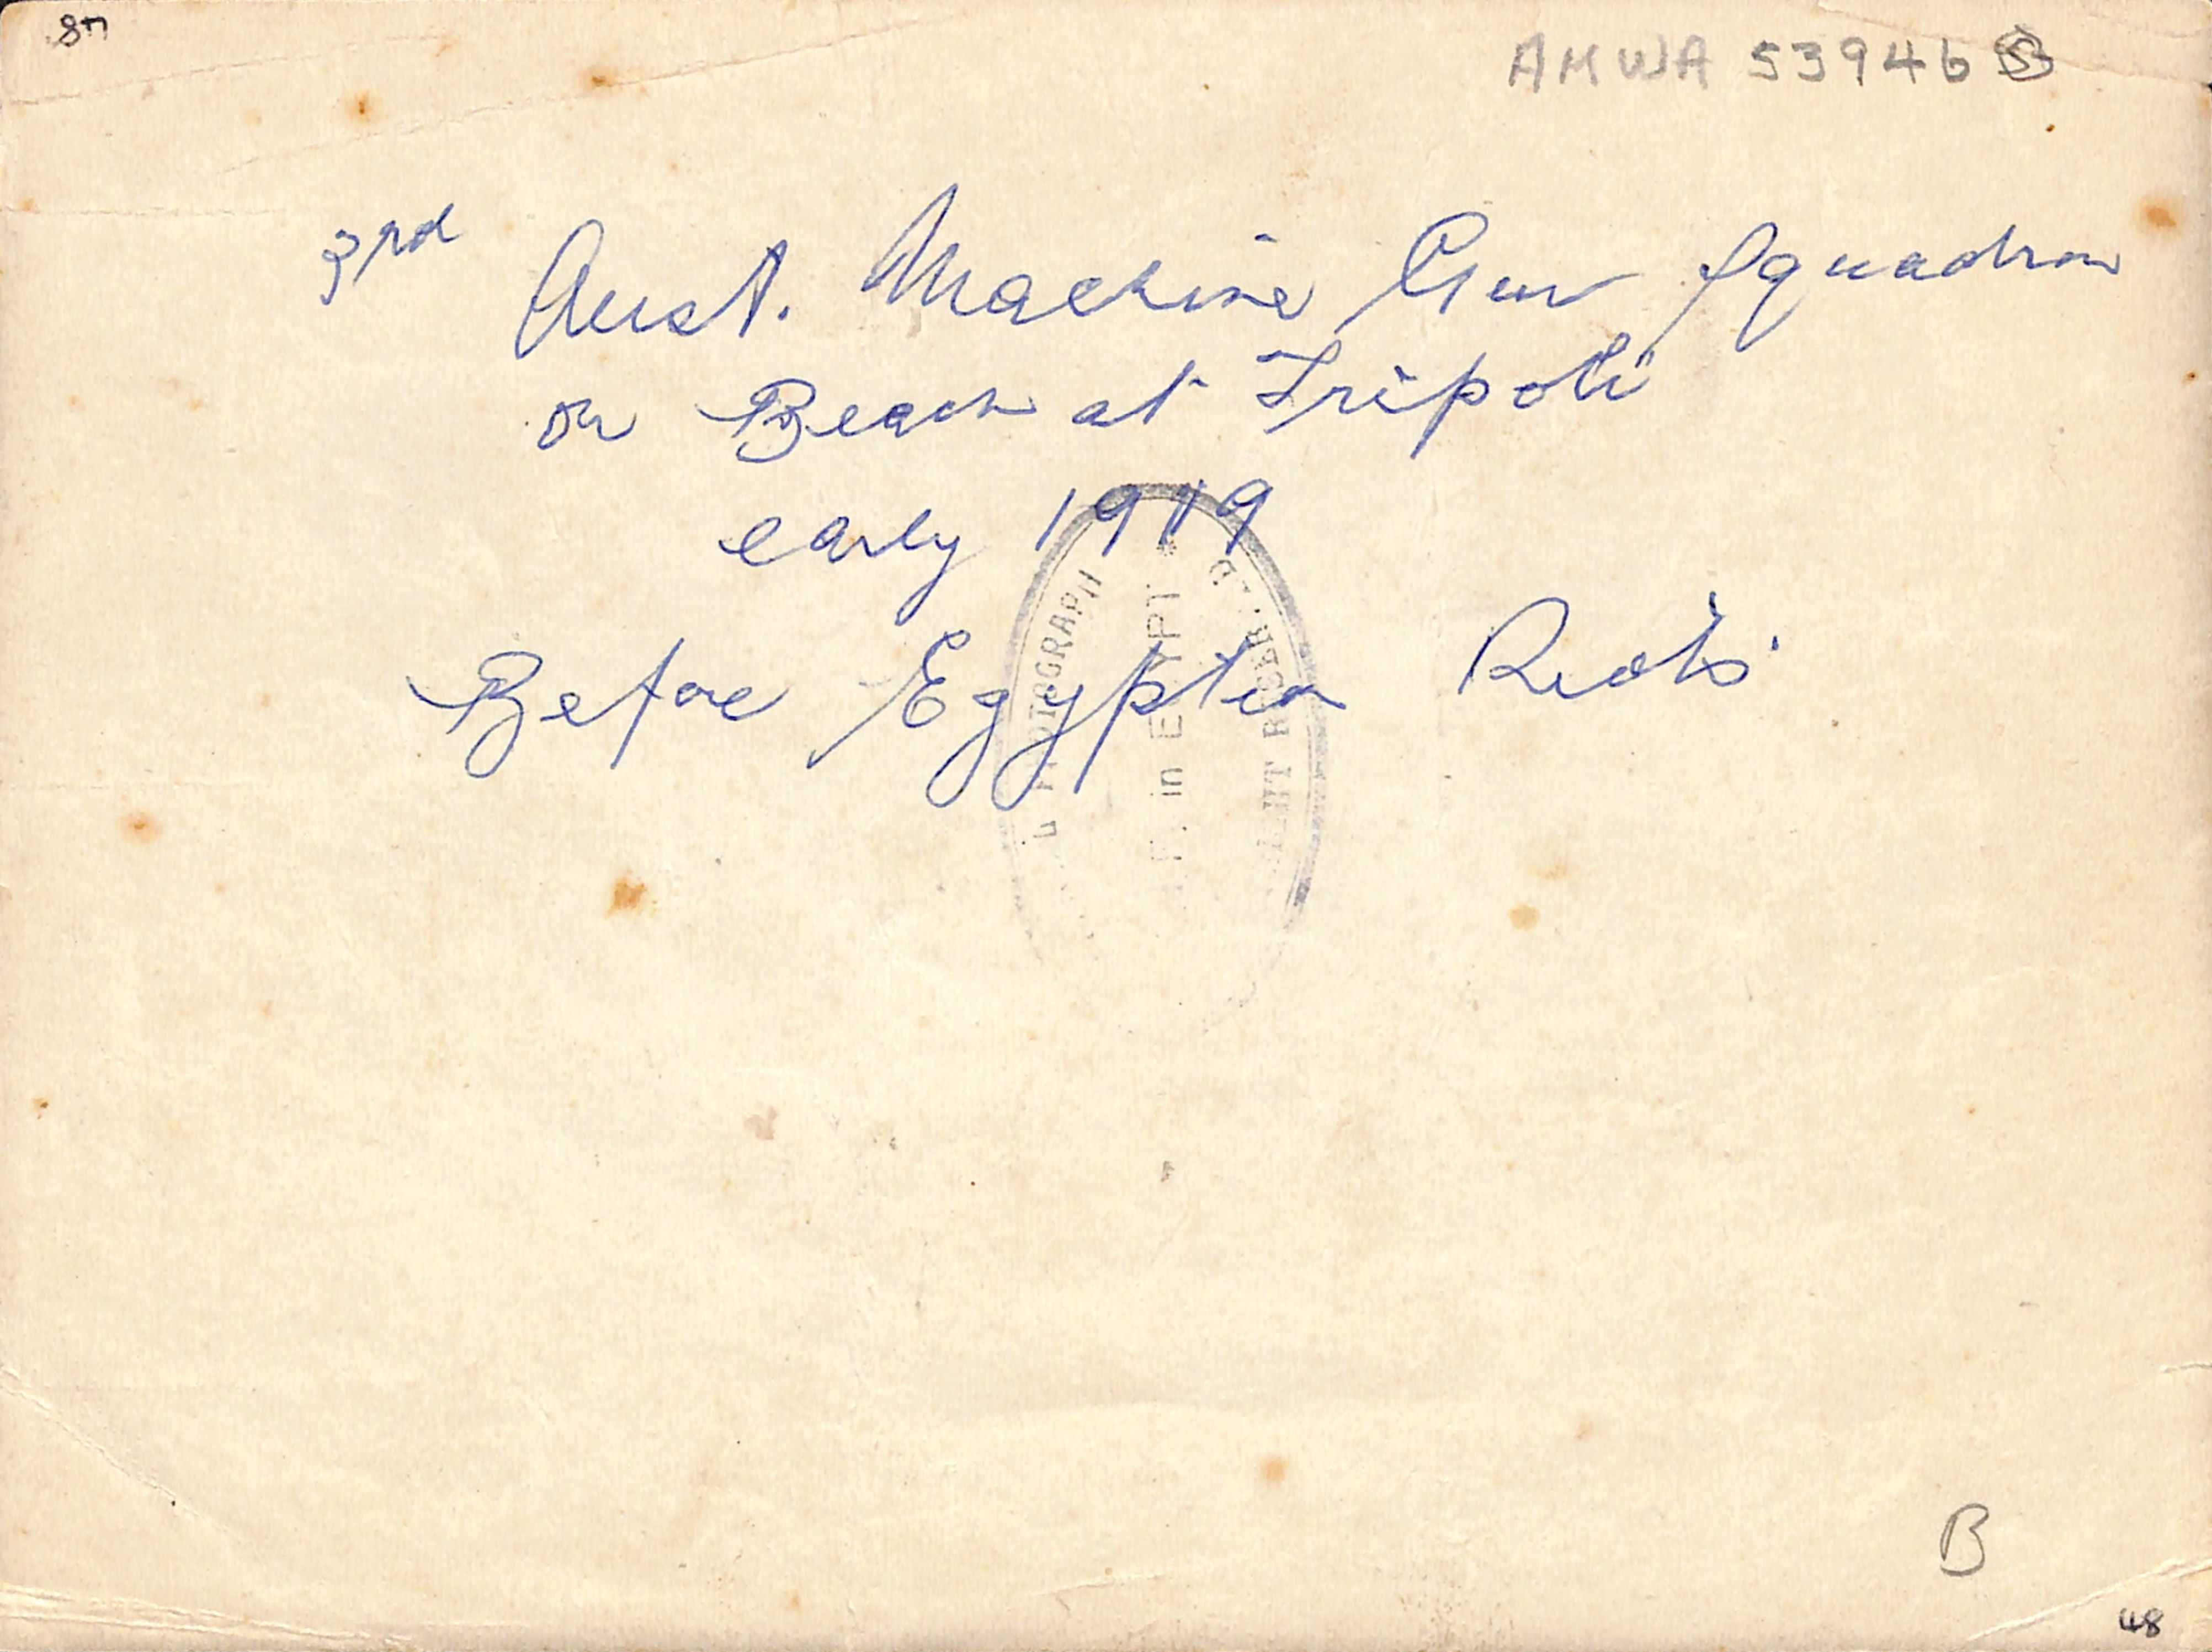 48
AMWA 53946 B
3rd Aust. Machine Gun Squadron
on Beach at Tripoli
early 1919
Before Egyptian Riots.
PHOTOGRAPH
in EGYPT
B
48